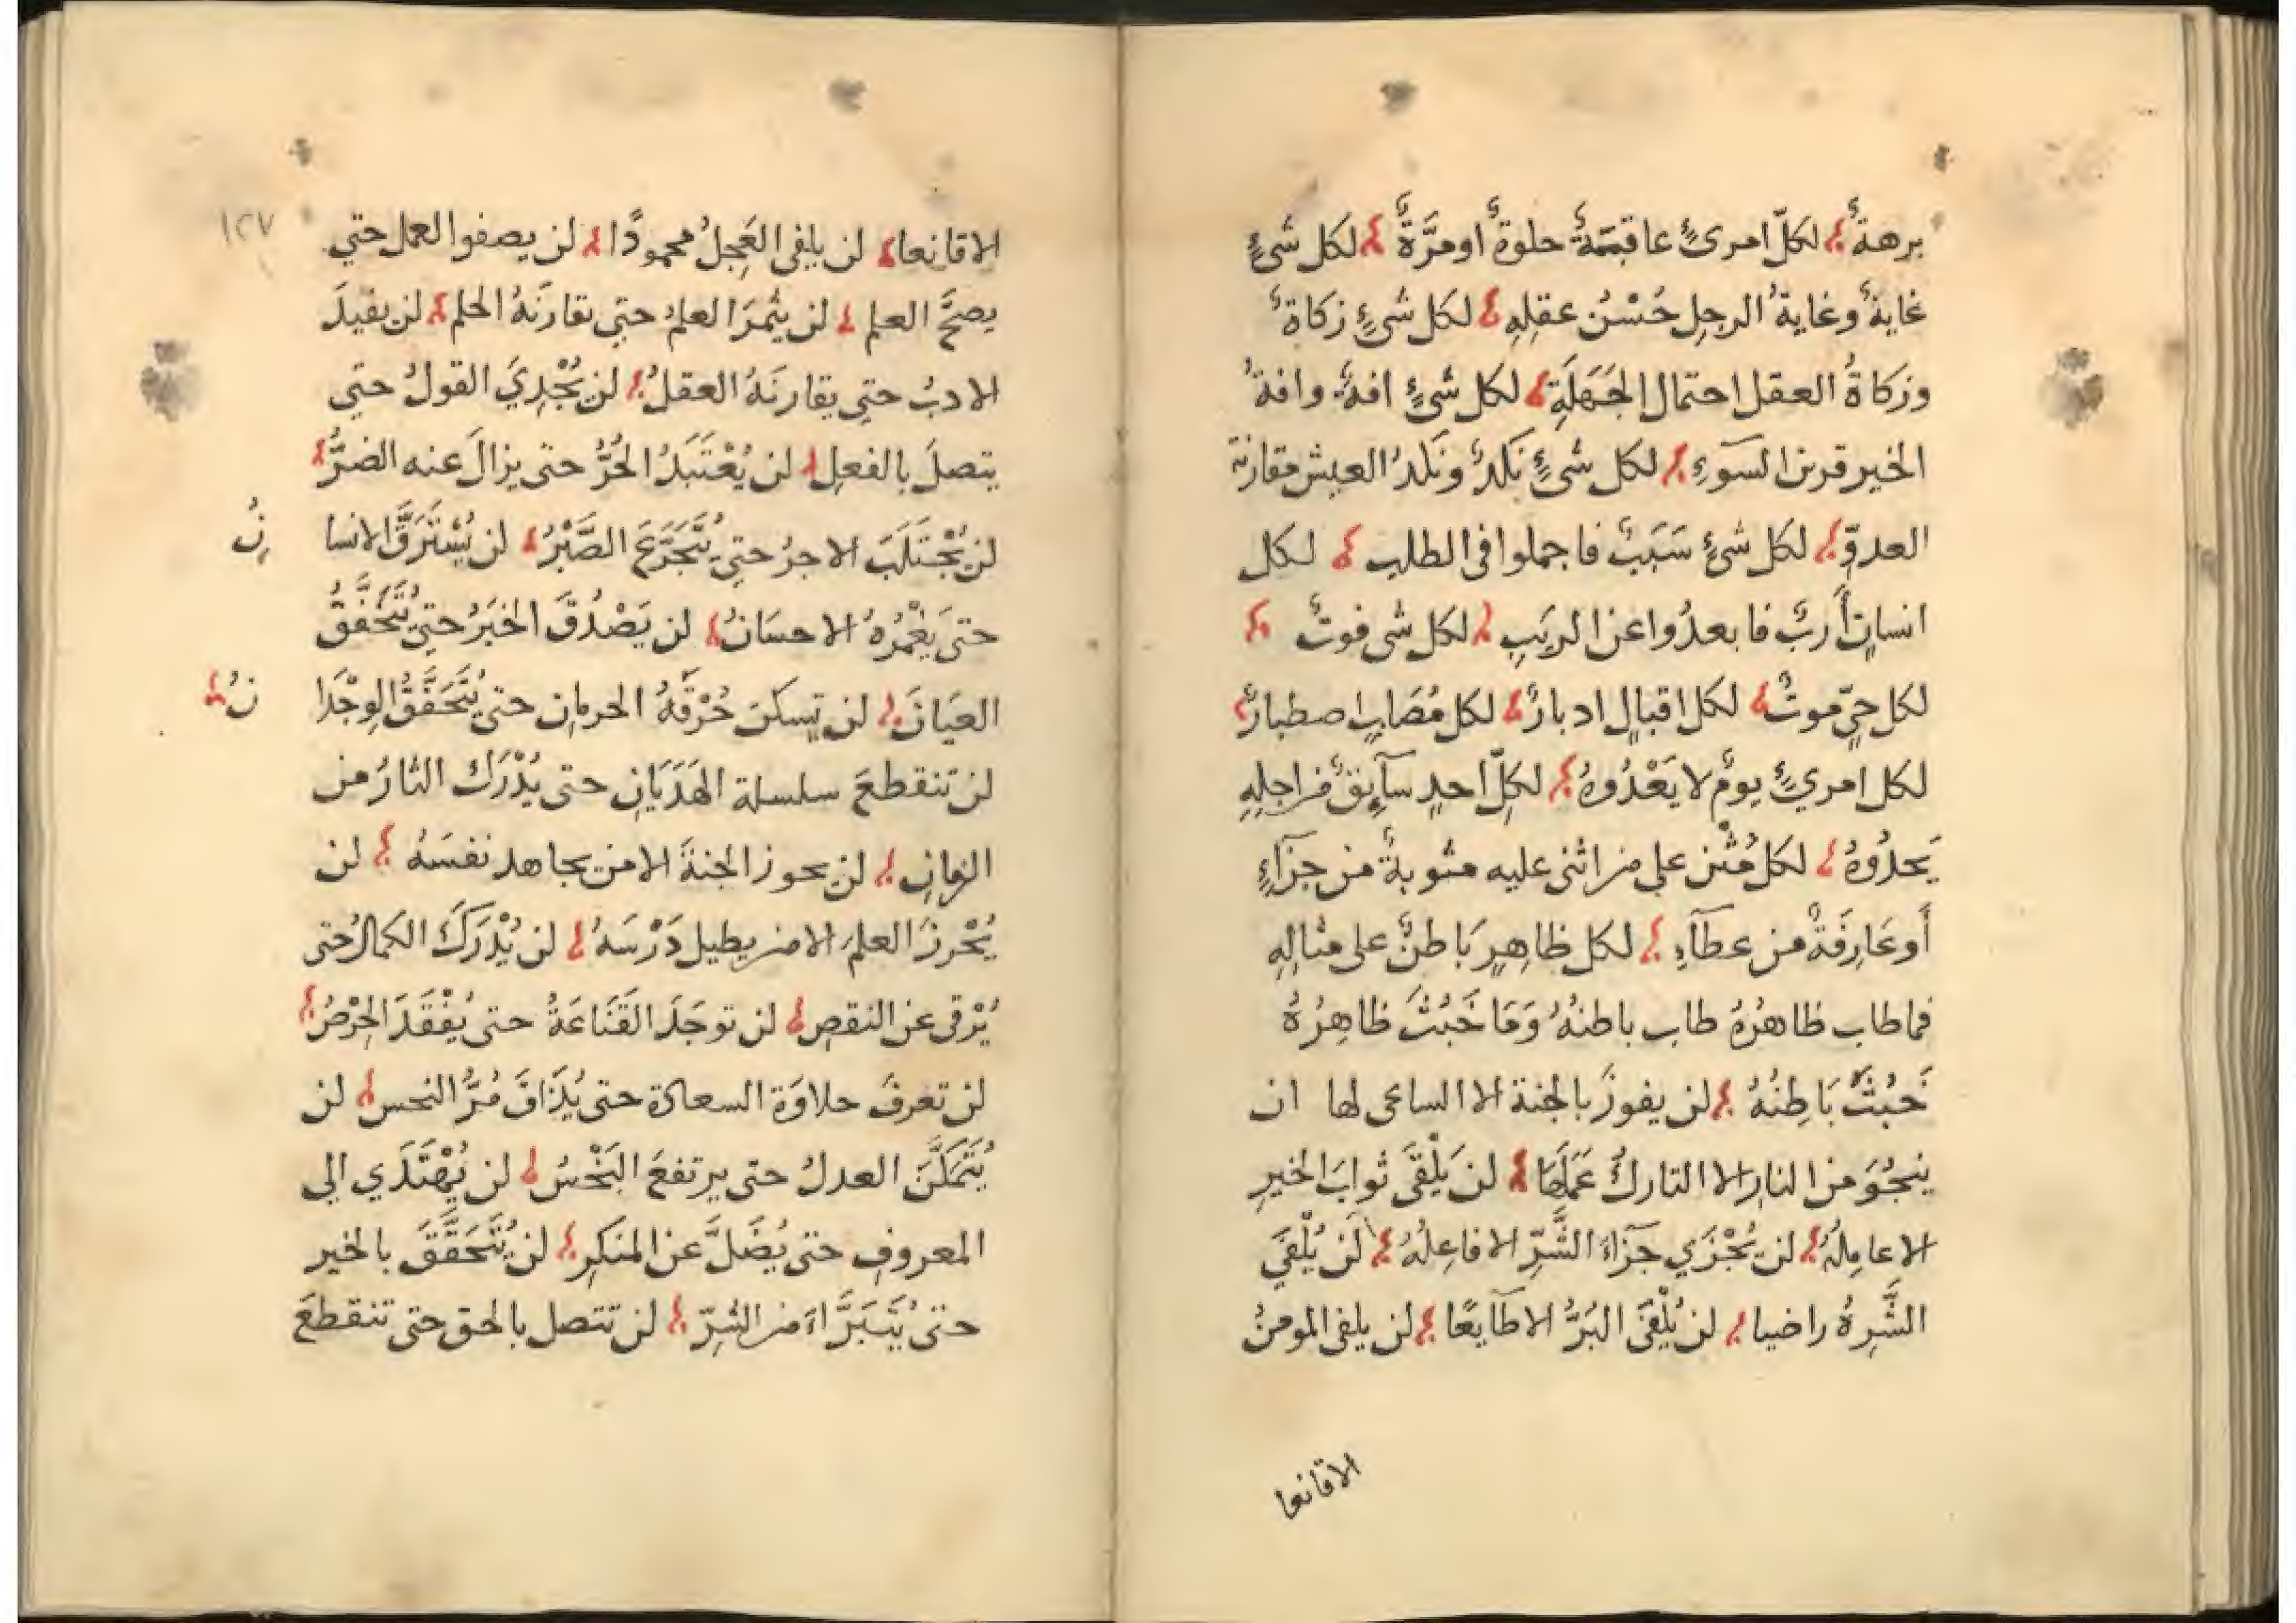 برهةٌ لكلّ امرئٍ عاقبةٌ حلوةٌ او مرَّةٌ لكل شئٍ
غايةٌ وغايةُ الرجلِ حُسْنُ عقلِهِ لكل شئٍ زكاةٌ
وزكاةُ العقل احتمال الجَهَلَةِ لكل شئٍ افةٌ وافةُ
الخير قرين السَوءِ لكل شئٍ نَكَدٌ ونَكَدُ العيش مقارنة
العدوِّ لكل شئٍ سَبَبٌ فاجملوا في الطلب لكل
انسانٍ أَربٌ فابعدُوا عن الريَبِ لكل شي فوتٌ
لكل حيٍّ موتٌ لكل اقبالٍ ادبارٌ لكل مُصَابٍ اصطبارٌ
لكل امريٍ يومٌ لا يَعْدُوهُ لكلّ احدٍ سآئقٌ من اجلِهِ
يَحدُوهُ لكل مُثْنٍ على من اثنى عليه مثوبةٌ من جزآءٍ
أَو عَارِفَةٌ من عطآءِ لكل ظاهِرٍ بَاطنٌ على مثالِهِ
فما طاب ظاهرُهُ طاب باطنهُ وَمَا خَبُثَ ظاهِرُهُ
خَبُثَ بَاطِنُهُ لن يفوزَ بالجنة الا الساعى لها ان
ينجُوَ من النارِ الا التاركُ عَمَلَهَا لن يَلْقَى ثوابَ الخيرِ
الا عامِلُهُ لن يُجْزَي جَزَآءَ الشَّرِّ الا فاعِلُهُ لَن يُلْفَيَ
الشَّرِهُ راضيا لن يُلْفَىَ البَرُّ الا طآيعًا لن يلفى المومنُ
الا قانعا
الا قانعا لن يلفى العَجِلُ محمودًا لن يصفوا العمل حتي
١٢٧
يصحَّ العلم لن يثمرَ العلمُ حتي يقارنَهُ الحلم لن يفيدَ
الادبُ حتي يقارنَهُ العقلُ لن يُجْدِيَ القولُ حتي
يتصلَ بالفعلِ لن يُعْتَبَدُ الحُرُّ حتى يزالَ عنه الضرُّ
لن يُجْتَلَبَ الاجرُ حتي يُتَجَرَّعَ الصَّبْرُ لن يُسْتَرَقَّ الانسا نُ
حتى يَغْمُرَهُ الاحسَانُ لن يَصْدُقَ الخبَرُ حتي يُتَحَقَّقُ
العيَانَ لن تسكن حُرْقَةُ الحرمان حتى يُتَحَقَّقُ الوِجْدَا نُ
لن تَنقطعَ سلسلة الهَذَيَانِ حتى يُدْرَك الثارُ من
الزمانِ لن يحوز الجنةَ الا من يجاهد نفسَهُ لن
يُحْرزَ العلمَ الا من يطيل دَرْسَهُ لن يُدْرَكَ الكمالُ حتى
يُرْقى عن النقصِ لن توجَدَ القَنَاعَةُ حتى يُفْقَدَ الحِرْصُ
لن تعرفَ حلاوَة السعادة حتى يُذَاقَ مُرُّ النحس لن
يُتَمَكَّنَ العدلُ حتى يرتفعَ البَخْسُ لن يُهْتَدَي الي
المعروفِ حتى يُضَلَّ عن المنكرِ لن يُتَحَقَّقَ بالخير
حتى يُتَبَرَّاءَ من الشرِّ لن تتصل بالحق حتى تنقطعَ